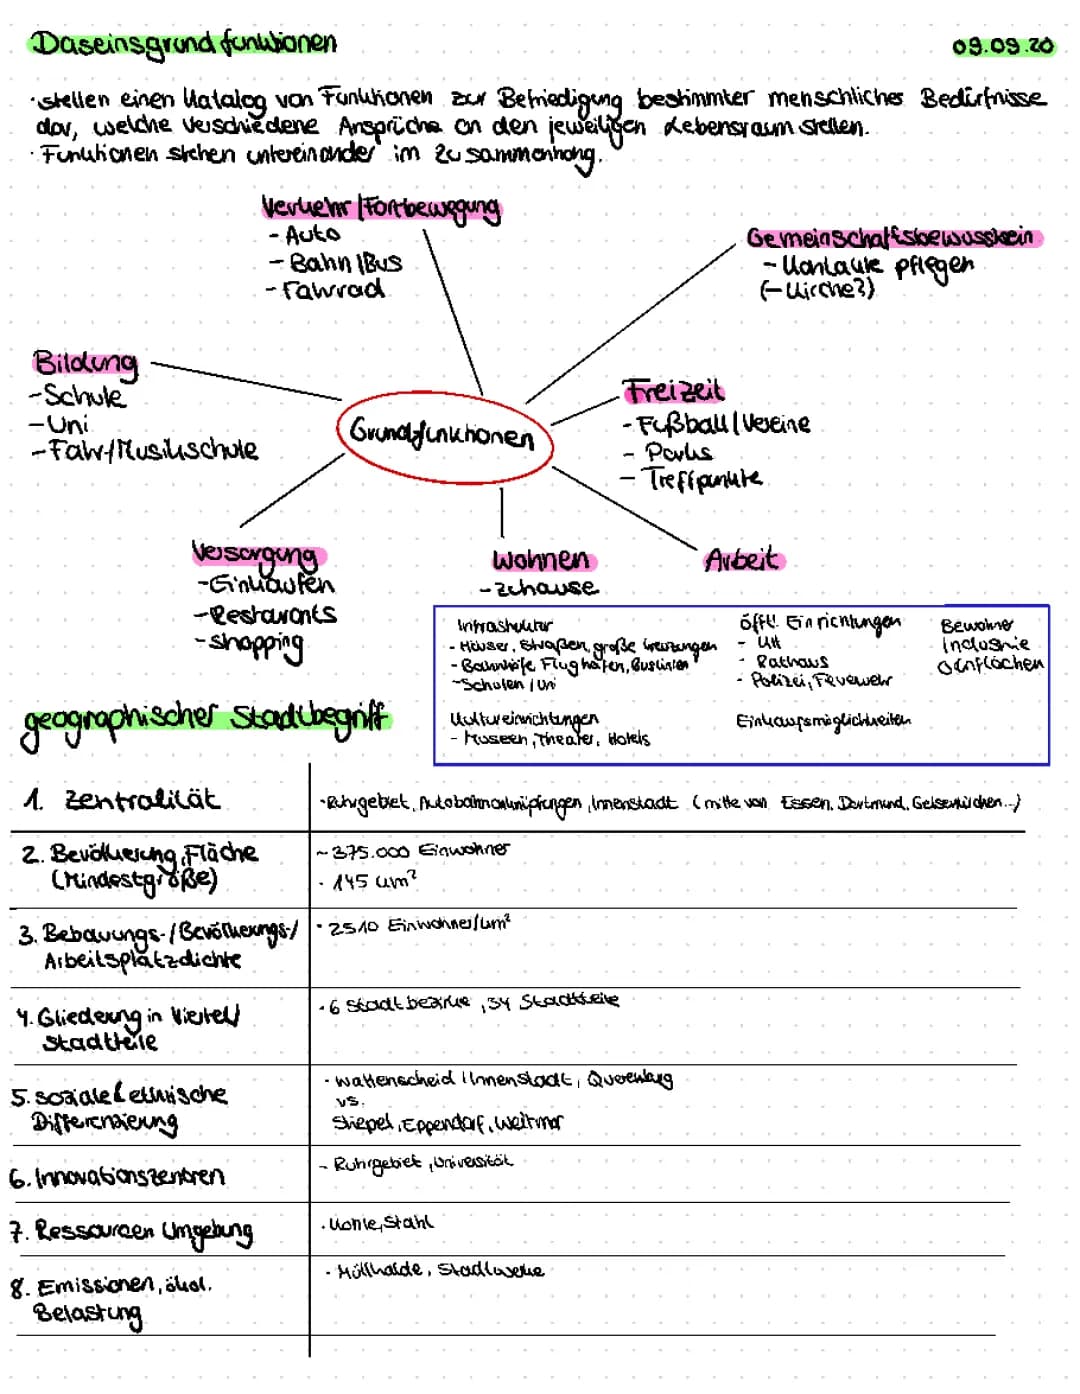 Daseinsgrundfunktionen
09.09.20
· stellen einen Katalog von Funktionen zur Befriedigung bestimmter menschliches Bedürfnisse
dar, welche verschiedene Ansprüche an den jeweiligen Lebensraum stellen.
· Funktionen stehen untereinander im Zusammenhang.
Verkehr/Fortbewegung
- Auto
- Bahn/Bus
- Fahrrad
Gemeinschaftsbewusstsein
- Kontakte pflegen
(- Kirche?)
Bildung
- Schule
- Uni
- Fahr-/Musikschule
Grundfunktionen
Freizeit
- Fußball/Vereine
- Parks
- Treffpunkte
Versorgung
- Einkaufen
- Restaurants
- shopping
Wohnen
- zuhause
Arbeit
Infrastruktur
- Häuser, Straßen, große Kreuzungen
- Bahnhöfe, Flughäfen, Buslinien
- Schulen/Uni
öfftl. Einrichtungen
- Rathaus
- Polizei, Feuerwehr
Bewohner
Industrie
Grünflächen
Kultureinrichtungen
- Museen, Theater, Hotels
Einkaufsmöglichkeiten
geographischer Stadtbegriff
1. Zentralität
· Ruhrgebiet, Autobahnanknüpfungen, Innenstadt (mitte von Essen, Dortmund, Gelsenkirchen...)
2. Bevölkerung, Fläche
(Mindestgröße)
~ 375.000 Einwohner
· 145 km²
3. Bebauungs-/Bevölkerungs-/
Arbeitsplatzdichte
· 2510 Einwohner/km²
4. Gliederung in Viertel/
Stadtteile
· 6 Stadtbezirke, 34 Stadtteile
5. soziale & ethnische
Differenzierung
· Wattenscheid, Innenstadt, Querenburg
vs.
Stiepel, Eppendorf, Weitmar
6. Innovationszentren
- Ruhrgebiet, Universität
7. Ressourcen Umgebung
· Kohle, Stahl
8. Emissionen, ökol.
Belastung
· Müllhalde, Stadtwerke